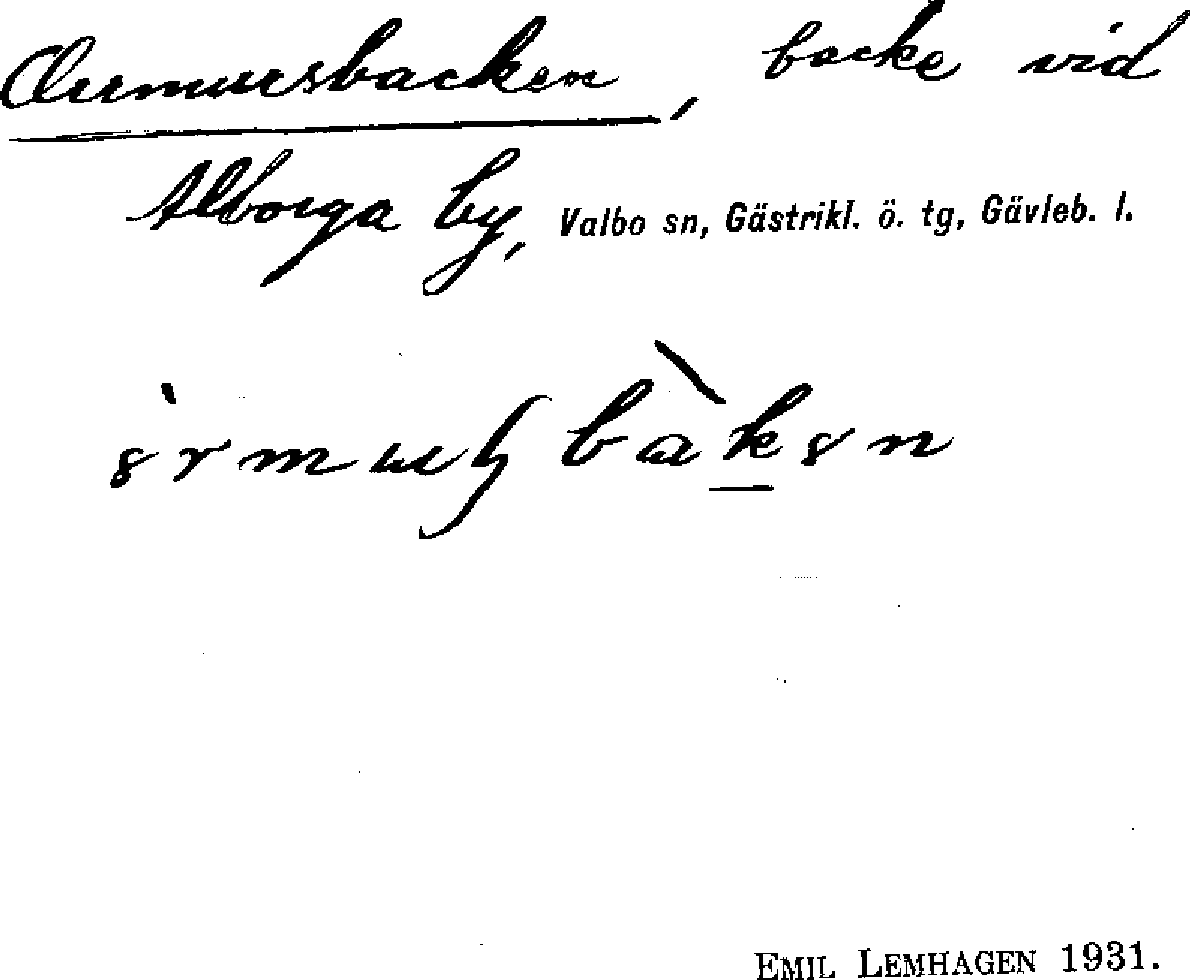 Urmursbacken, backe vid
Alborga by, Valbo sn, Gästrikl. ö. tg, Gävleb. l.
EMIL LEMHAGEN 1931.